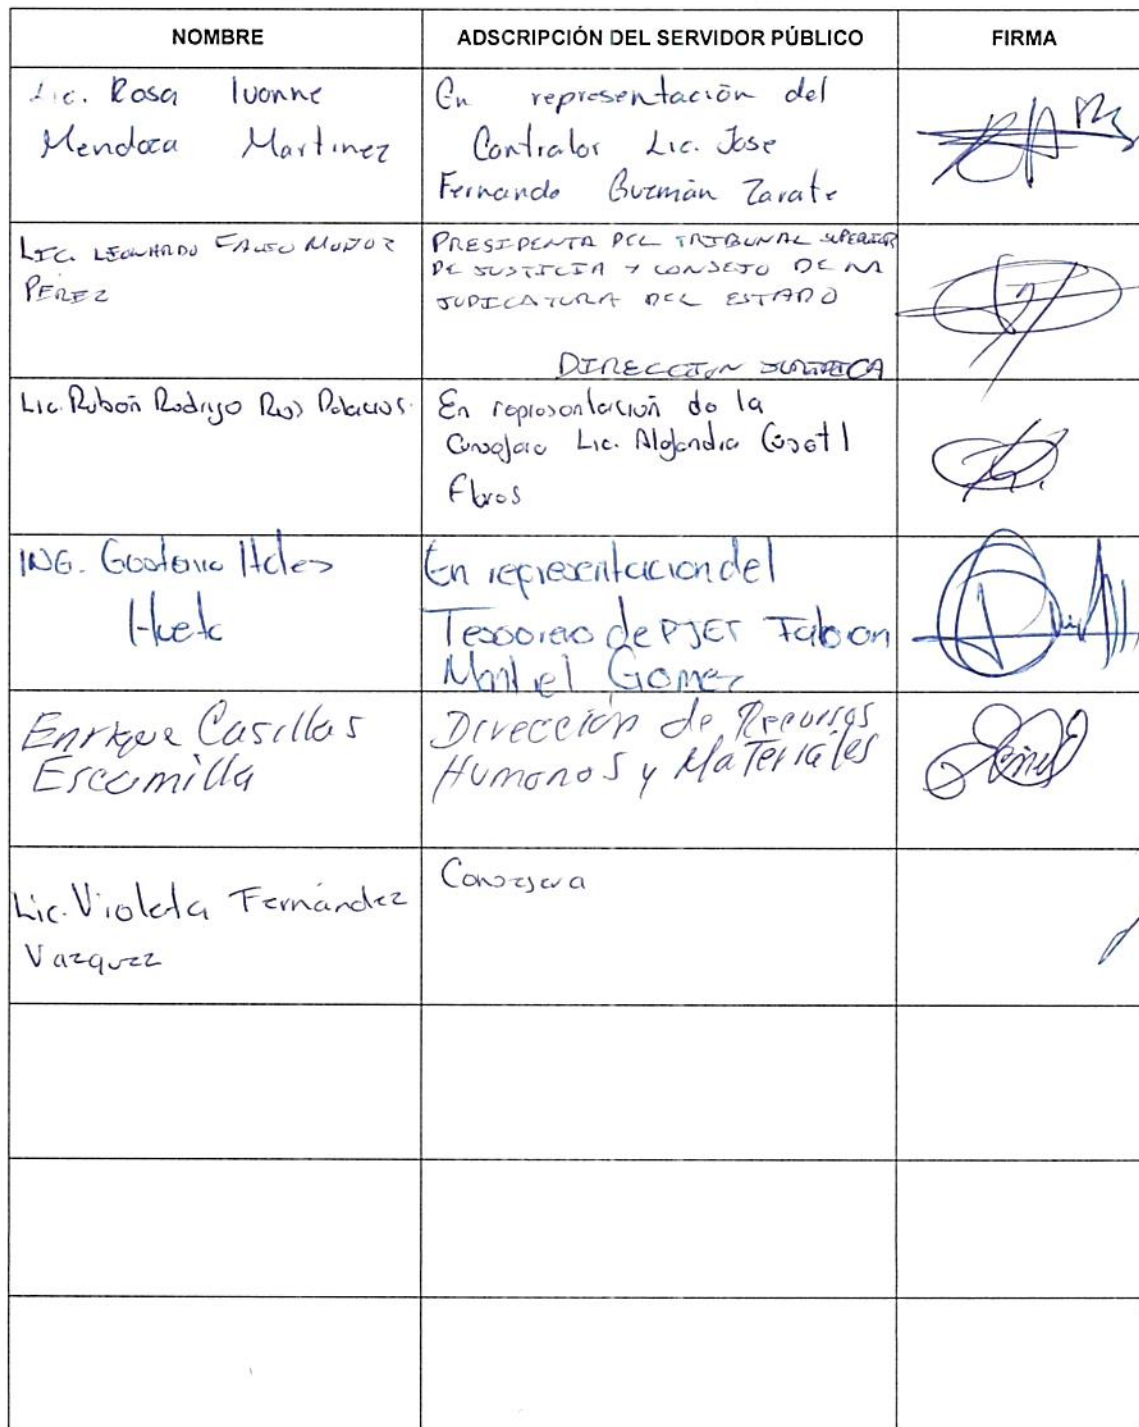 NOMBRE ADSCRIPCIÓN DEL SERVIDOR PÚBLICO FIRMA
Lic. Rosa Ivonne
Mendoza Martinez
En representación del
Contralor Lic. Jose
Fernando Guzmán Zarate
LIC. LEONARDO FAUSTO MUÑOZ
PEREZ
PRESIDENTA DEL TRIBUNAL SUPERIOR
DE JUSTICIA Y CONSEJO DE LA
JUDICATURA DEL ESTADO
DIRECCION JURIDICA
Lic. Rubén Rodrigo Rios Palacios.
En representación de la
Consejera Lic. Alejandra
Flores
ING. Gustavo
En representacion del
Tesorero de PJET Fabian
Montiel Gomez
Enrique Casillas
Escamilla
Dirección de Recursos
Humanos y Materiales
Lic. Violeta Fernández
Vazquez
Consejera